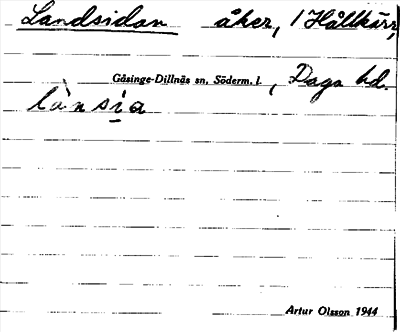 Landsidan åker, 1 Hållkärr,
Gåsinge-Dillnäs sn, Söderm. l., Daga hd.
lànsia
Artur Olsson 1944